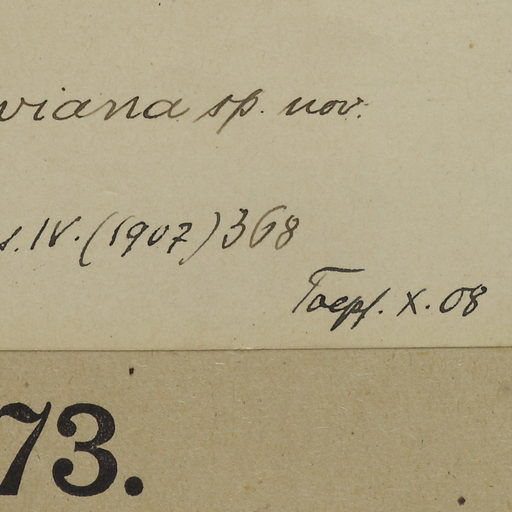 viana sp. nov.
s. IV. (1907) 368
Toepf. X. 08
73.